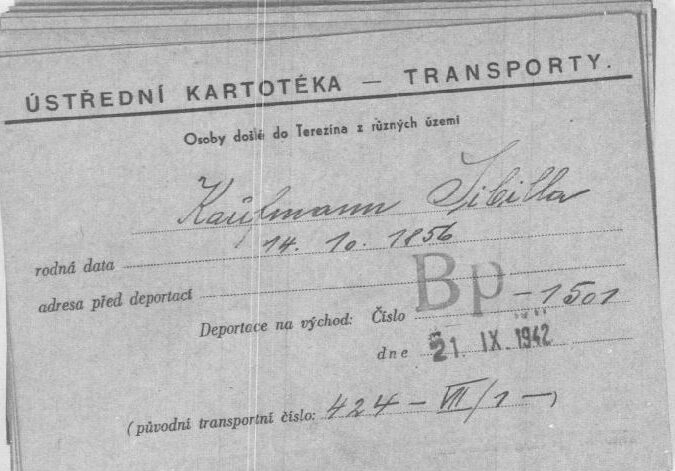 ÚSTŘEDNÍ KARTOTÉKA — TRANSPORTY.
Osoby došlé do Terezína z různých území
Kaufmann Sibilla
rodná data 14. 10. 1856
adresa před deportací
Deportace na východ: Číslo Bp - 1501
dne 21. IX. 1942
(původní transportní číslo: 424 - VII/1 -)